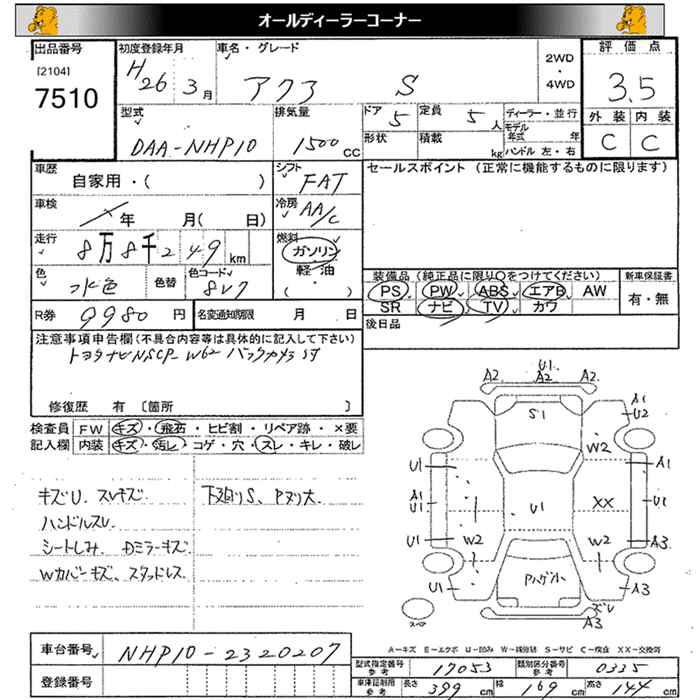 オールディーラーコーナー
出品番号 初度登録年月 車名・グレード 評価点
[2104] H26 3月 アクア S 2WD・4WD 3.5
7510
型式 排気量 ドア 定員 ディーラー・並行 外装 内装
DAA-NHP10 1500cc 5 5人 モデル年式 年 C C
形状 積載 kg ハンドル 左・右
車歴 自家用・( ) シフト FAT セールスポイント (正常に機能するものに限ります)
車検 年 月( 日) 冷房 AA/C
走行 8万8千249km 燃料 ガソリン・軽油・( )
色 水色 色替 色コード 8V7
装備品 (純正品に限り○をつけてください) 新車保証書
PS PW ABS エアB AW 有・無
SR ナビ TV カワ
R券 9980円 名変通知期限 月 日 後日品
注意事項申告欄(不具合内容等は具体的に記入して下さい)
トヨタナビNSCP-W62 バックカメラ
修復歴 有 〔箇所 〕
検査員 FW キズ・飛石・ヒビ割・リペア跡・×要
記入欄 内装 キズ・汚レ・コゲ・穴・スレ・キレ・破レ
キズU、スレキズ 下廻りS、Pヌリ大
ハンドルスレ
シートしみ、Dミラーキズ
Wカバーキズ、スタッドレス
U1
A2 A2 A2
S1 A1 U2
W2
U1 A1
A1 U1 U1 XX U1
U1 W2 W2 A3
Pハゲ小
U1 A3
スペア ズレ
A-キズ E-エクボ U-凹み W-補修跡 S-サビ C-腐食 XX-交換済
車台番号 NHP10-2320207
登録番号
型式指定番号 参考 17053 類別区分番号 参考 0335
車庫証明用 参考 長さ 399cm 幅 169cm 高さ 144cm